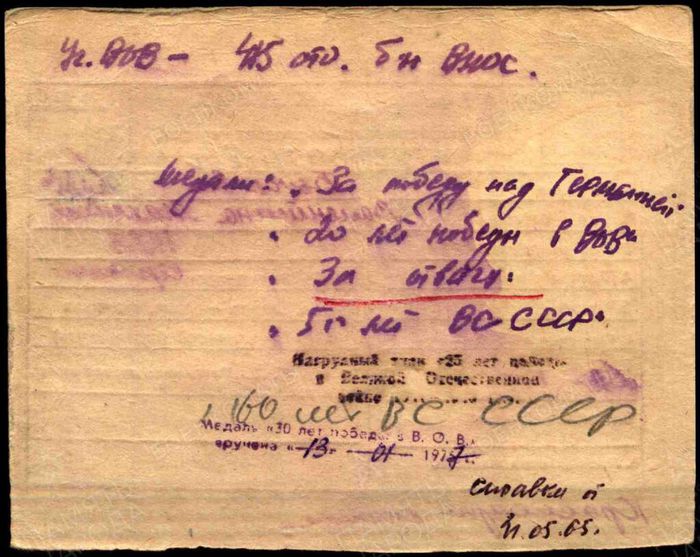 Уч. ВОВ – 415 отд. бн ВНОС.
Медали: "За победу над Германией
" 20 лет победы в ВОВ"
" За отвагу"
" 50 лет ВС СССР"
Нагрудный знак «25 лет победы
в Великой Отечественной
войне
" 60 лет ВС СССР
Медаль «30 лет победы в В. О. В.»
вручена «13» - 01 - 1977
справка от
21.05.65.